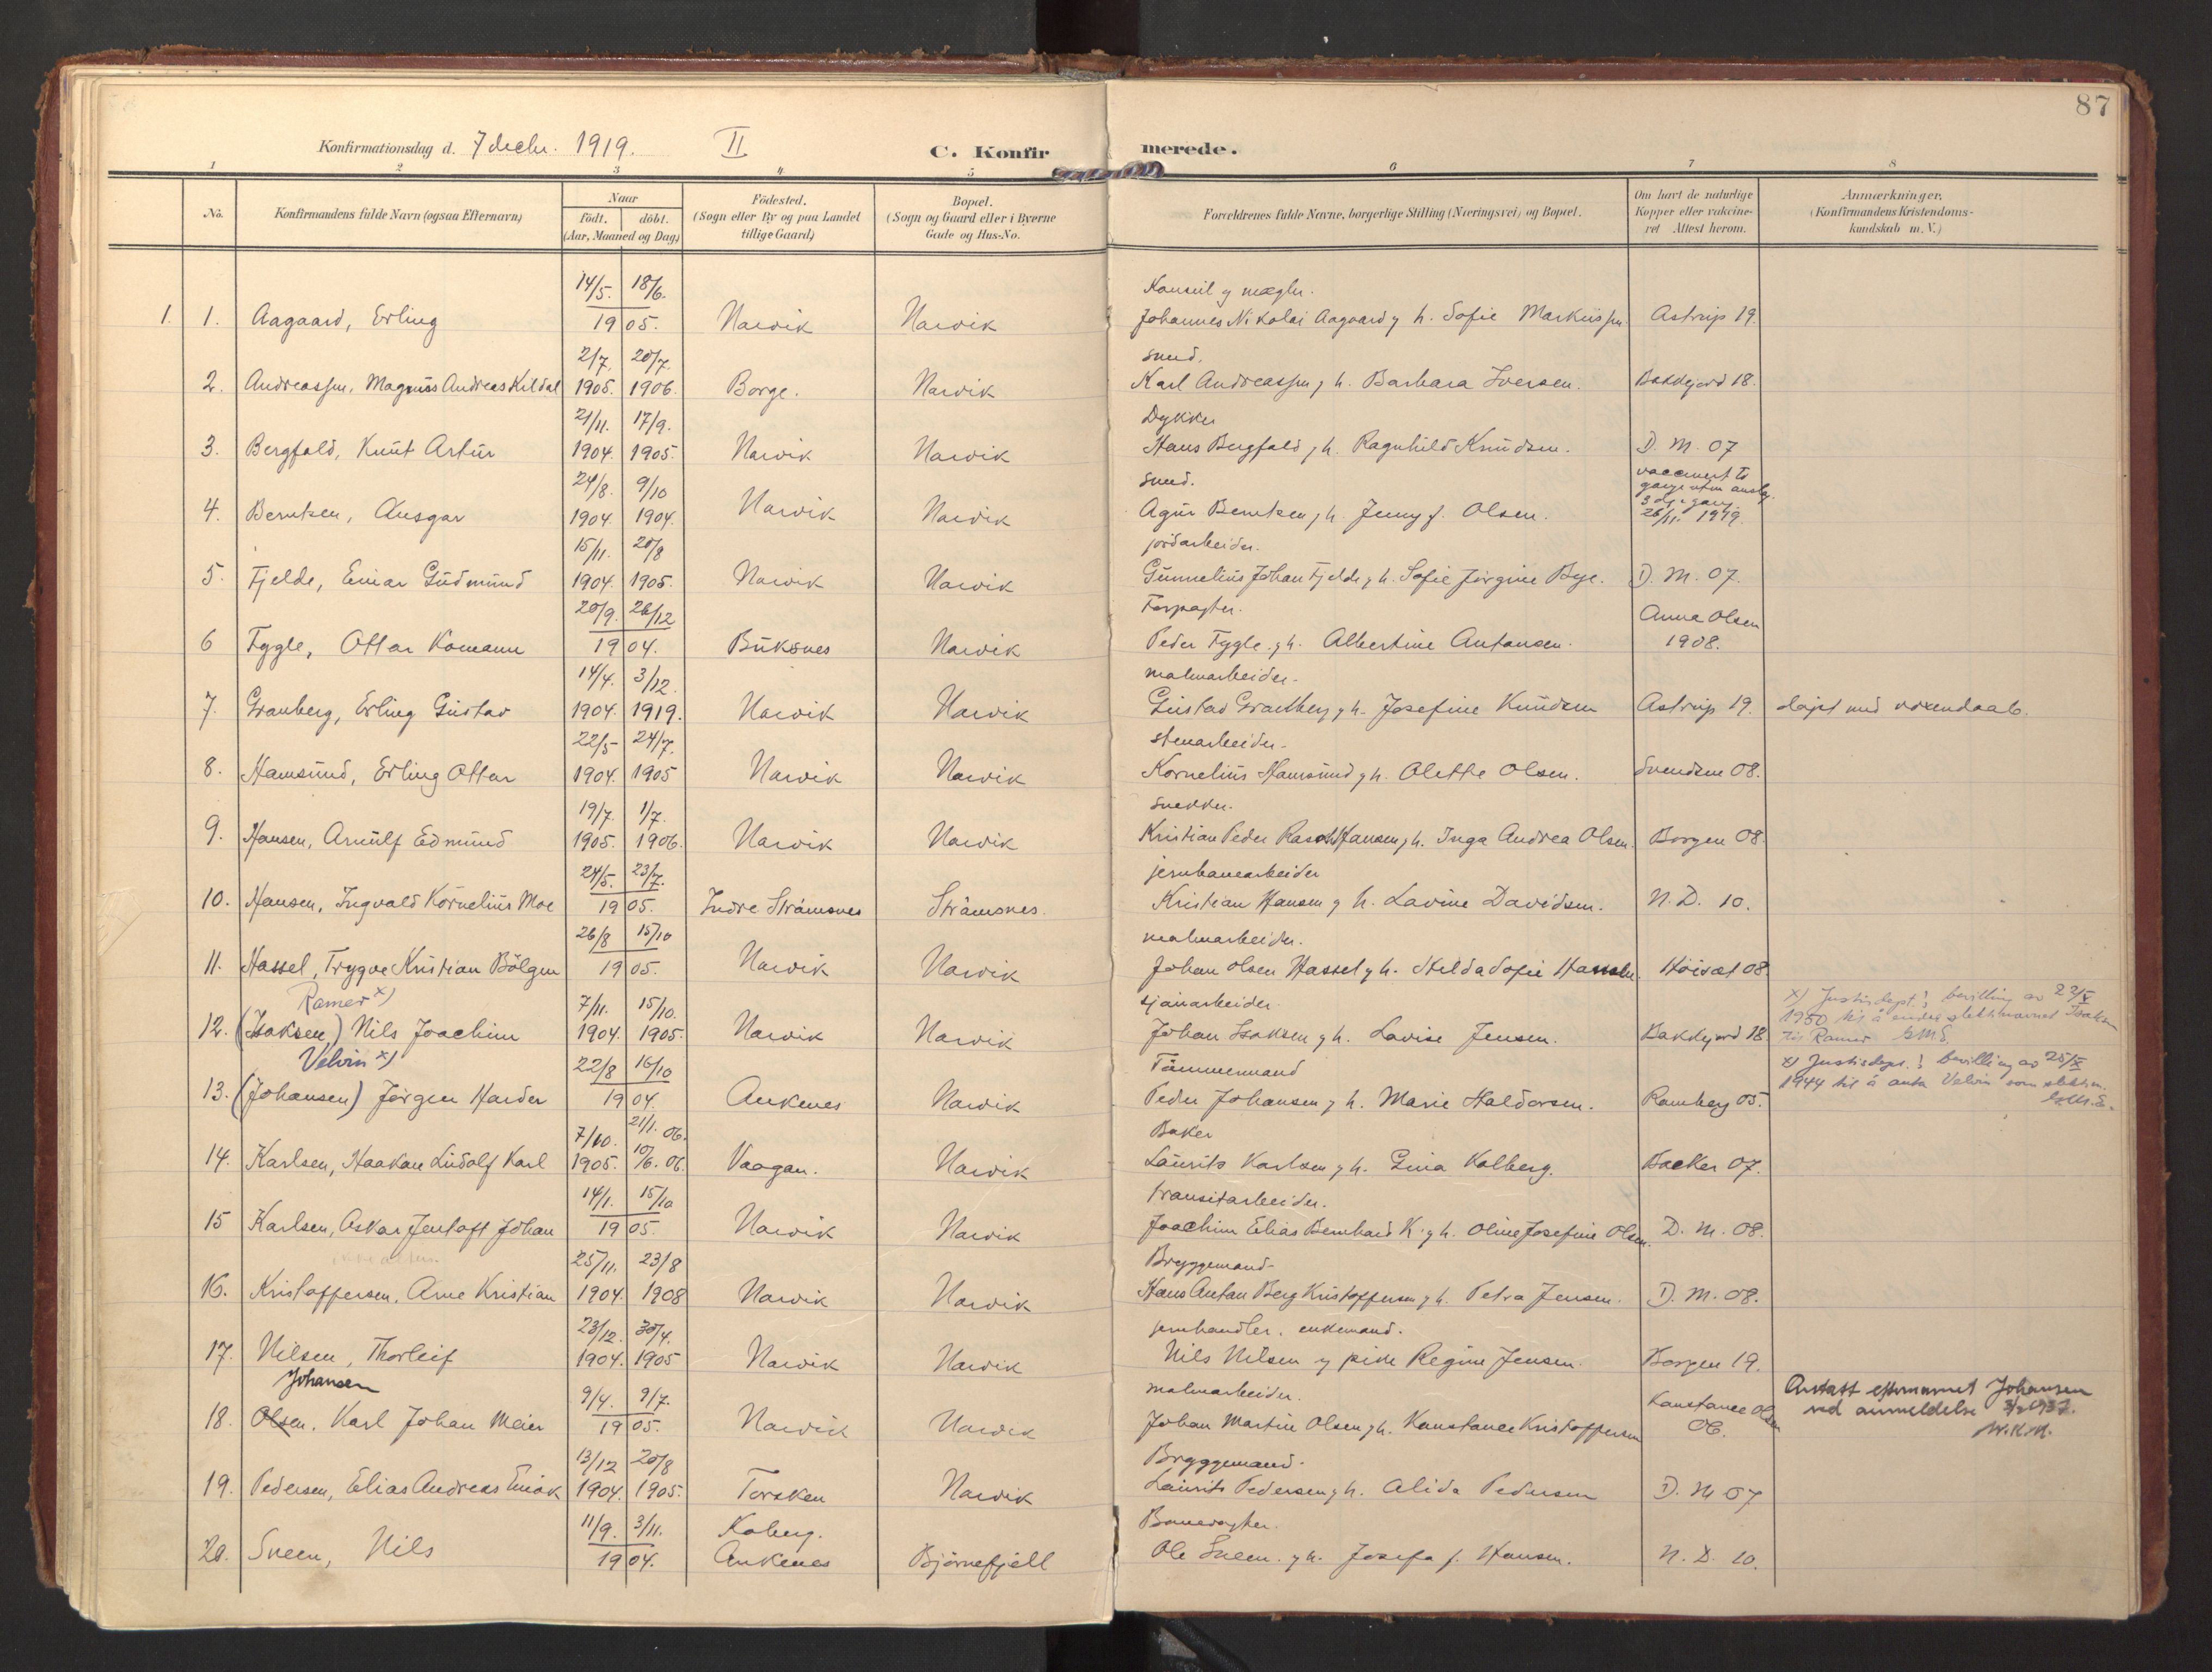 87
Konfirmationsdag d. 7 decbr. 1919. II C. Konfirmerede.
1 2 3 4 5 6 7 8
No. Konfirmandens fulde Navn (ogsaa Efternavn) Naar Födt. döbt. (Aar, Maaned og Dag) Födested. (Sogn eller By og paa Landet tillige Gaard) Bopæl. (Sogn og Gaard eller i Byerne Gade og Hus-No. Forældrenes fulde Navne, borgerlige Stilling (Næringsvei) og Bopæl. Om havt de naturlige Kopper eller vakcineret Attest herom. Anmærkninger. (Konfirmandens Kristendomskundskab m. V.)
14/5. 18/6. Konsul og mægler.
1. 1. Aagaard, Erling 1905. Narvik Narvik Johannes Nikolai Aagaard og h. Sofie Markussen Astrup 19.
2/7. 20/7. smed.
2. Andreassen, Magnus Andreas Kildal 1905. 1906. Borge. Narvik Karl Andreassen og h. Barbara Iversen. Bakkejord 18.
21/11. 17/9. Dykker
3. Bergfald, Knut Artur 1904. 1905. Narvik Narvik Hans Bergfald og h. Ragnhild Knudsen. D. M. 07
24/8. 9/10 smed. vaccinert to gange uten anslag
4. Berntsen, Ansgar 1904. 1904. Narvik Narvik Agur Berntsen og h. Jenny f. Olsen. 3dje gang 26/11. 1919.
15/11. 20/8 jordarbeider.
5. Fjelde, Einar Gudmund 1904. 1905. Narvik Narvik Gunnelius Johan Fjelde og h. Sofie Jørgine Bye. D. M. 07.
20/9. 26/12 Forpagter. Anna Olsen
6 Fygle, Ottar Komann 1904. Buksnes Narvik Peder Fygle og h. Albertine Antonsen. 1908.
14/4. 3/12. malmarbeider.
7. Granberg, Erling Gustav 1904. 1919. Narvik Narvik Gustav Granberg og h. Josefine Knudsen Astrup 19. døpt med voxendaab.
22/5 24/7. stenarbeider.
8. Hamsund, Erling Ottar 1904. 1905 Narvik Narvik Kornelius Hamsund og h. Olette Olsen. Svendsen 08.
19/7. 1/7. snekker.
9. Hansen, Arnulf Edmund 1905. 1906. Narvik Narvik Kristian Peder Rasch Hansen og h. Inga Andrea Olsen. Borgen 08.
24/5. 23/7. jernbanearbeider
10. Hansen, Ingvald Kornelius Moe 1905. Indre Strømsnes Strømsnes. Kristian Hansen og h. Lavine Davidsen. N. D. 10.
26/8 15/10 malmarbeider.
11. Hassel, Trygve Kristian Bölgen 1905. Narvik Narvik Johan Olsen Hassel og h. Hilda Sofie Hansen. 08.
Ramer x) 7/11. 15/10. sjøarbeider. x) Justisdept.s bevilling av 23/X
12. (Isaksen,) Nils Joachim 1904. 1905. Narvik Narvik Johan Isaksen og h. Lovise Jensen. Bakkejord 18. 1950 til å endre slektsnavnet Isaksen til Ramer
Velvin x) 22/8 16/10 Tømmermand x) Justisdept.s bevilling av 25/X
13. (Johansen) Jørgen Harder 1904. Ankenes Narvik Peder Johansen og h. Marie Haldorsen. Ramberg 05. 1944 til å anta Velvin som slektsn.
7/10. 21/1. 06. Baker
14. Karlsen, Haakon Ludolf Karl 1905. 10/6. 06. Vaagan. Narvik Laurits Karlsen og h. Gina Kolberg. Backer 07.
14/1. 15/10 transitarbeider.
15 Karlsen, Oskar Jentoft Johan 1905. Narvik Narvik Joachim Elias Bernhard K. og h. Oline Josefine Olsen. D. M. 08.
25/11. 23/8 Bryggemand
16. Kristoffersen, Arne Kristian 1904. 1908 Narvik Narvik Hans Anton Berg Kristoffersen og h. Petra Jensen. D. M. 08.
23/12. 30/4. jernhandler. enkemand.
17. Nilsen, Thorleif 1904. 1905 Narvik Narvik Nils Nilsen og pike Regine Jensen. Borgen 19.
Johansen 9/4. 9/7. malmarbeider. Konstance Olsen Antatt efternavnet Johansen
18. Olsen, Karl Johan Meier 1905. Narvik Narvik Johan Martin Olsen og h. Konstance Kristoffersen 06. ved anmeldelse 1937.
13/12 20/8 Bryggemand.
19. Pedersen, Elias Andreas Einar 1904. 1905. Torsken Narvik Laurits Pedersen og h. Alida Pedersen D. M 07
11/9. 3/11. Kaberg. Banevogter.
20. Sneen, Nils 1904. Ankenes Bjørnefjell Ole Sneen. og h. Josefa f. Hansen. N. D. 10.